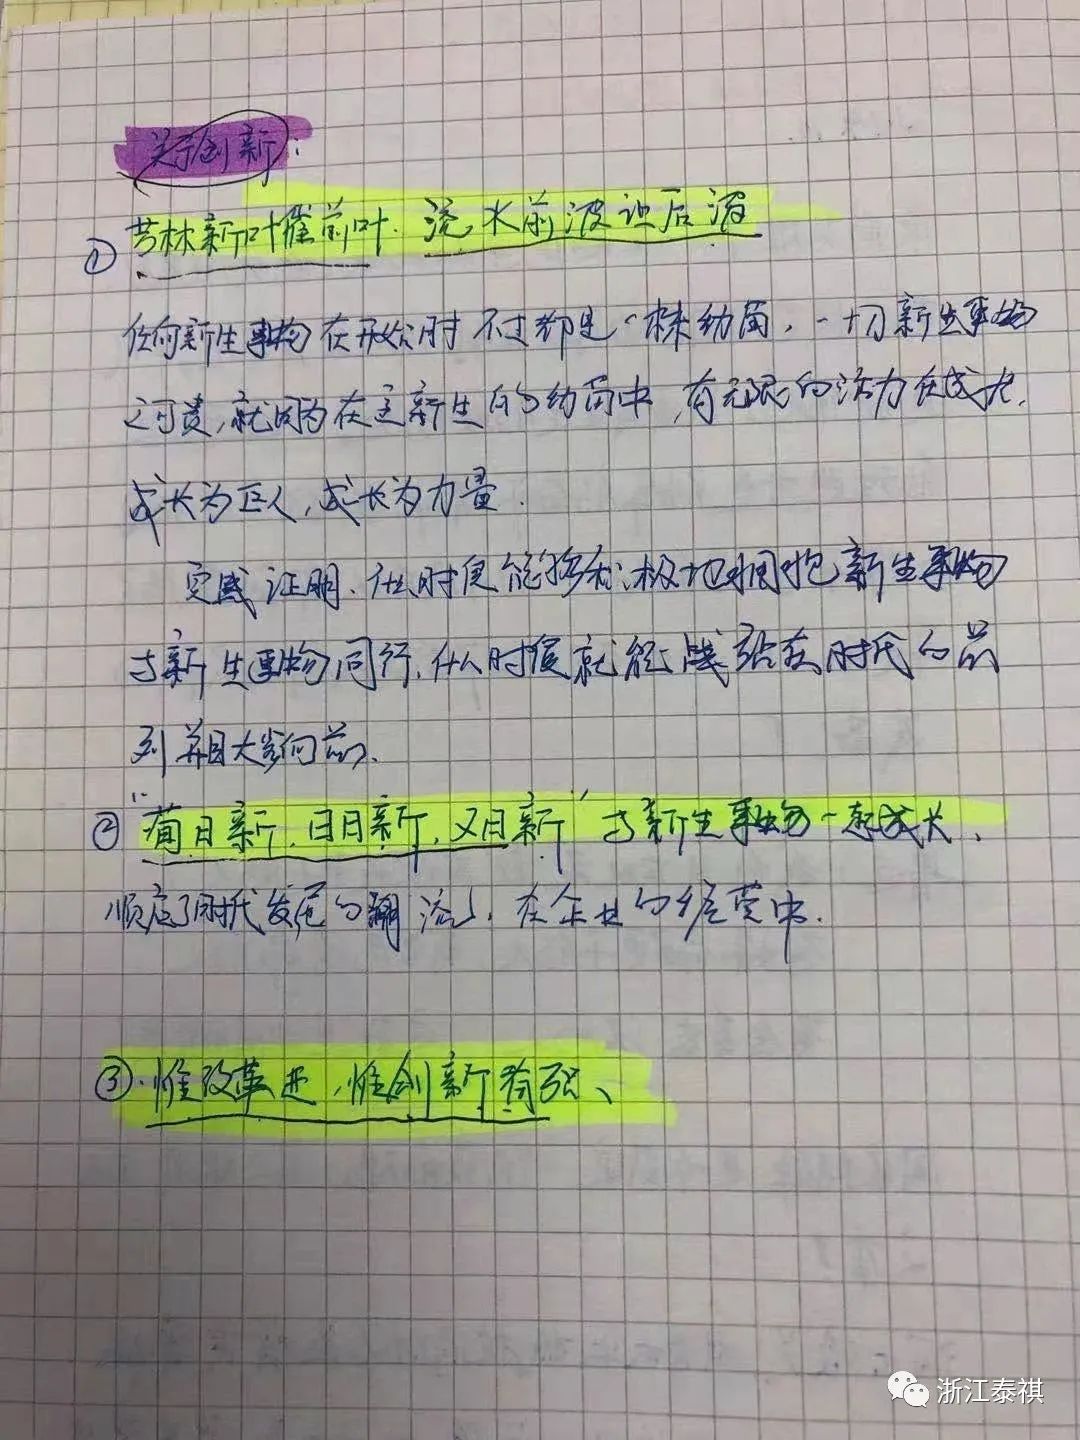 关于创新：
① 芳林新叶催前叶．流水前波让后波
任何新生事物在开始时不过都是一株幼苗，一切新生事物
之可贵，就因为在这新生的幼苗中，有无限的活力在成长，
成长为巨人，成长为力量．
实践证明．什么时候能够积极地拥抱新生事物
与新生事物同行，什么时候就能够站在时代的前
列并阔大步向前．
② “苟日新，日日新，又日新” 与新生事物一起成长，
顺应了时代发展的潮流，在企业的经营中．
③．惟改革进，惟创新者强、
浙江泰祺